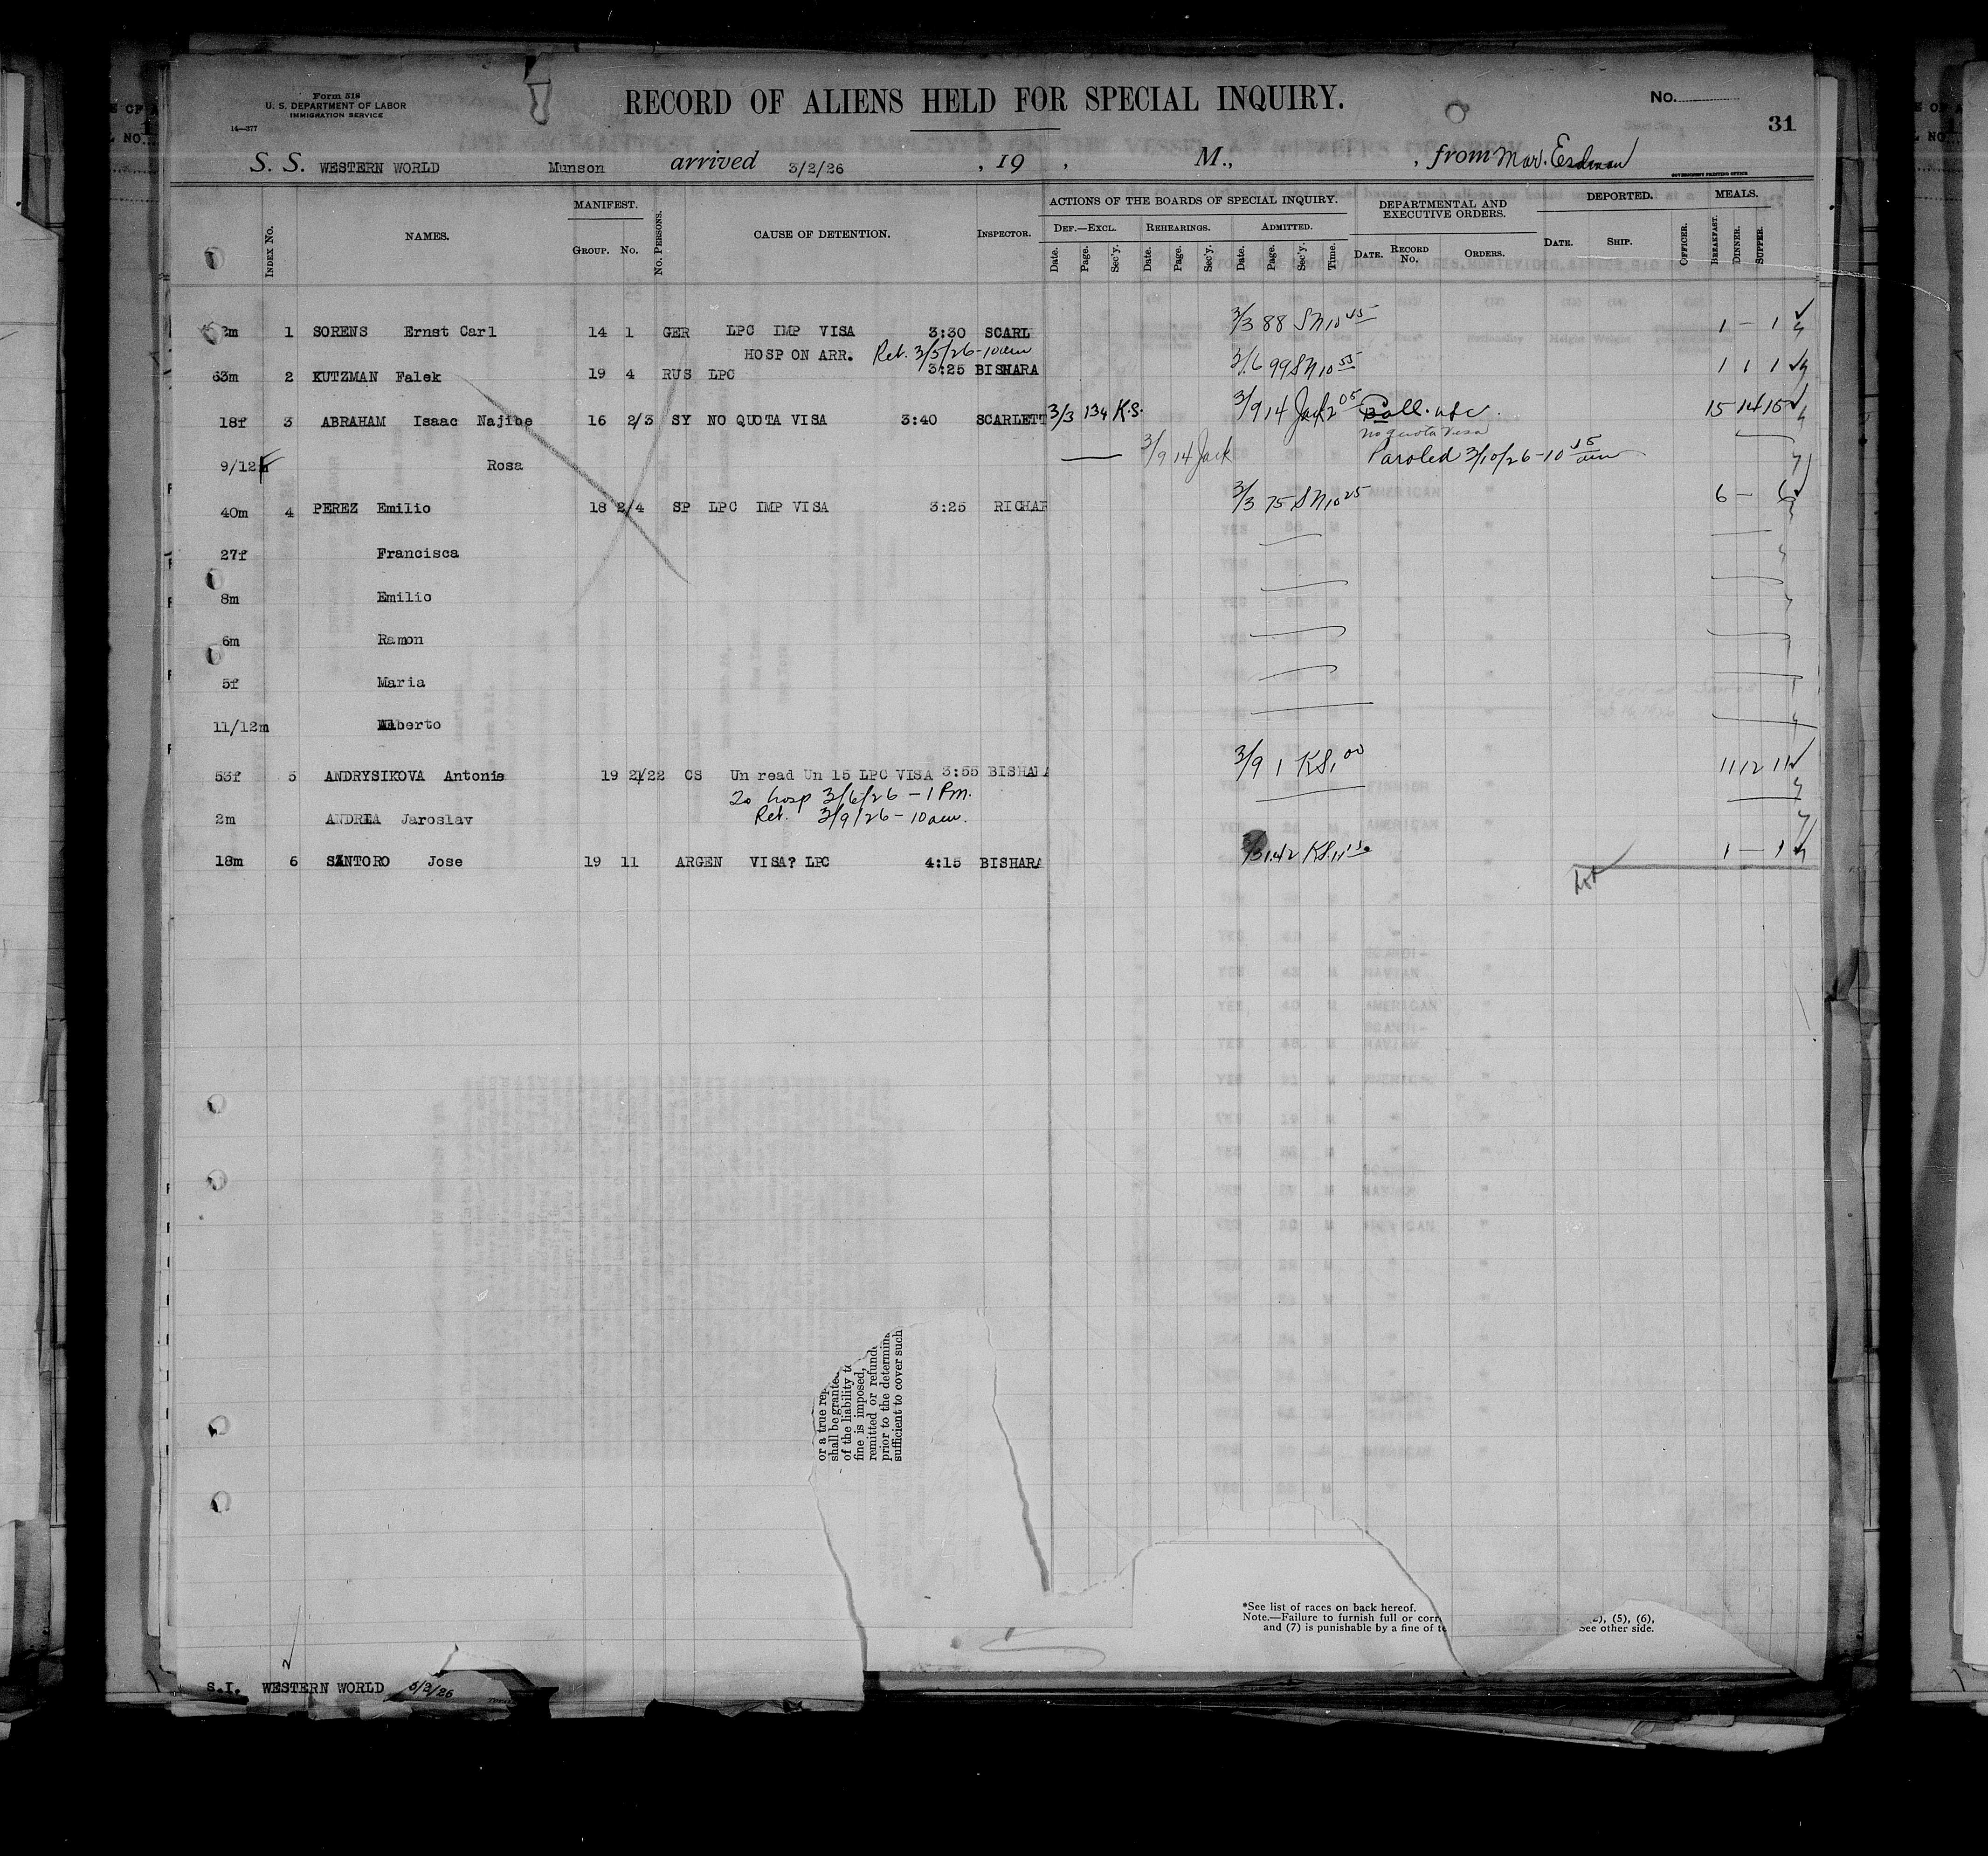 Form 518
U. S. DEPARTMENT OF LABOR
IMMIGRATION SERVICE
14—377
RECORD OF ALIENS HELD FOR SPECIAL INQUIRY.
No.
31
S. S. WESTERN WORLD Munson arrived 3/2/26 , 19 , M., , from Mar. Erdman
GOVERNMENT PRINTING OFFICE
INDEX NO. NAMES. MANIFEST. GROUP. NO. NO. PERSONS. CAUSE OF DETENTION. INSPECTOR. ACTIONS OF THE BOARDS OF SPECIAL INQUIRY. DEPARTMENTAL AND EXECUTIVE ORDERS. DEPORTED. MEALS.
DEF.—EXCL. REHEARINGS. ADMITTED.
Date. Page. Sec'y. Date. Page. Sec'y. Date. Page. Sec'y. Time. DATE. RECORD NO. ORDERS. DATE. SHIP. OFFICER. BREAKFAST. DINNER. SUPPER.
2m 1 SORENS Ernst Carl 14 1 GER LPC IMP VISA 3:30 SCARL 3/3 88 SN 10 45 1 – 1
HOSP ON ARR. Ret. 3/5/26-10am
63m 2 KUTZMAN Falek 19 4 RUS LPC 3:25 BISHARA 3/6 99 SN 10 55 1 1 1
18f 3 ABRAHAM Isaac Najibe 16 2/3 SY NO QUOTA VISA 3:40 SCARLETT 3/3 134 K.S. 3/9 14 Jack 2 05 15 14 15
no quota visa
9/12f Rosa 3/9 14 Jack Paroled 3/10/26-10 15 am
40m 4 PEREZ Emilio 18 2/4 SP LPC IMP VISA 3:25 RICHAR 3/3 75 SN 10 25 6 – 6
27f Francisca
8m Emilio
6m Ramon
5f Maria
11/12m Alberto
53f 5 ANDRYSIKOVA Antonie 19 21/22 CS Un read Un 15 LPC VISA 3:55 BISHARA 3/9 1 KS 1 00 11 12 11
To hosp 3/6/26 – 1 Pm.
Ret. 3/9/26 – 10 am.
2m ANDREA Jaroslav
18m 6 SANTORO Jose 19 11 ARGEN VISA? LPC 4:15 BISHARA 142 KS 1 – 1
or a true rep
shall be grante
of the liability to
fine is imposed,
remitted or refunde
prior to the determina
sufficient to cover such
*See list of races on back hereof.
Note.—Failure to furnish full or corr 2), (5), (6),
and (7) is punishable by a fine of te See other side.
S.I. WESTERN WORLD 3/2/26